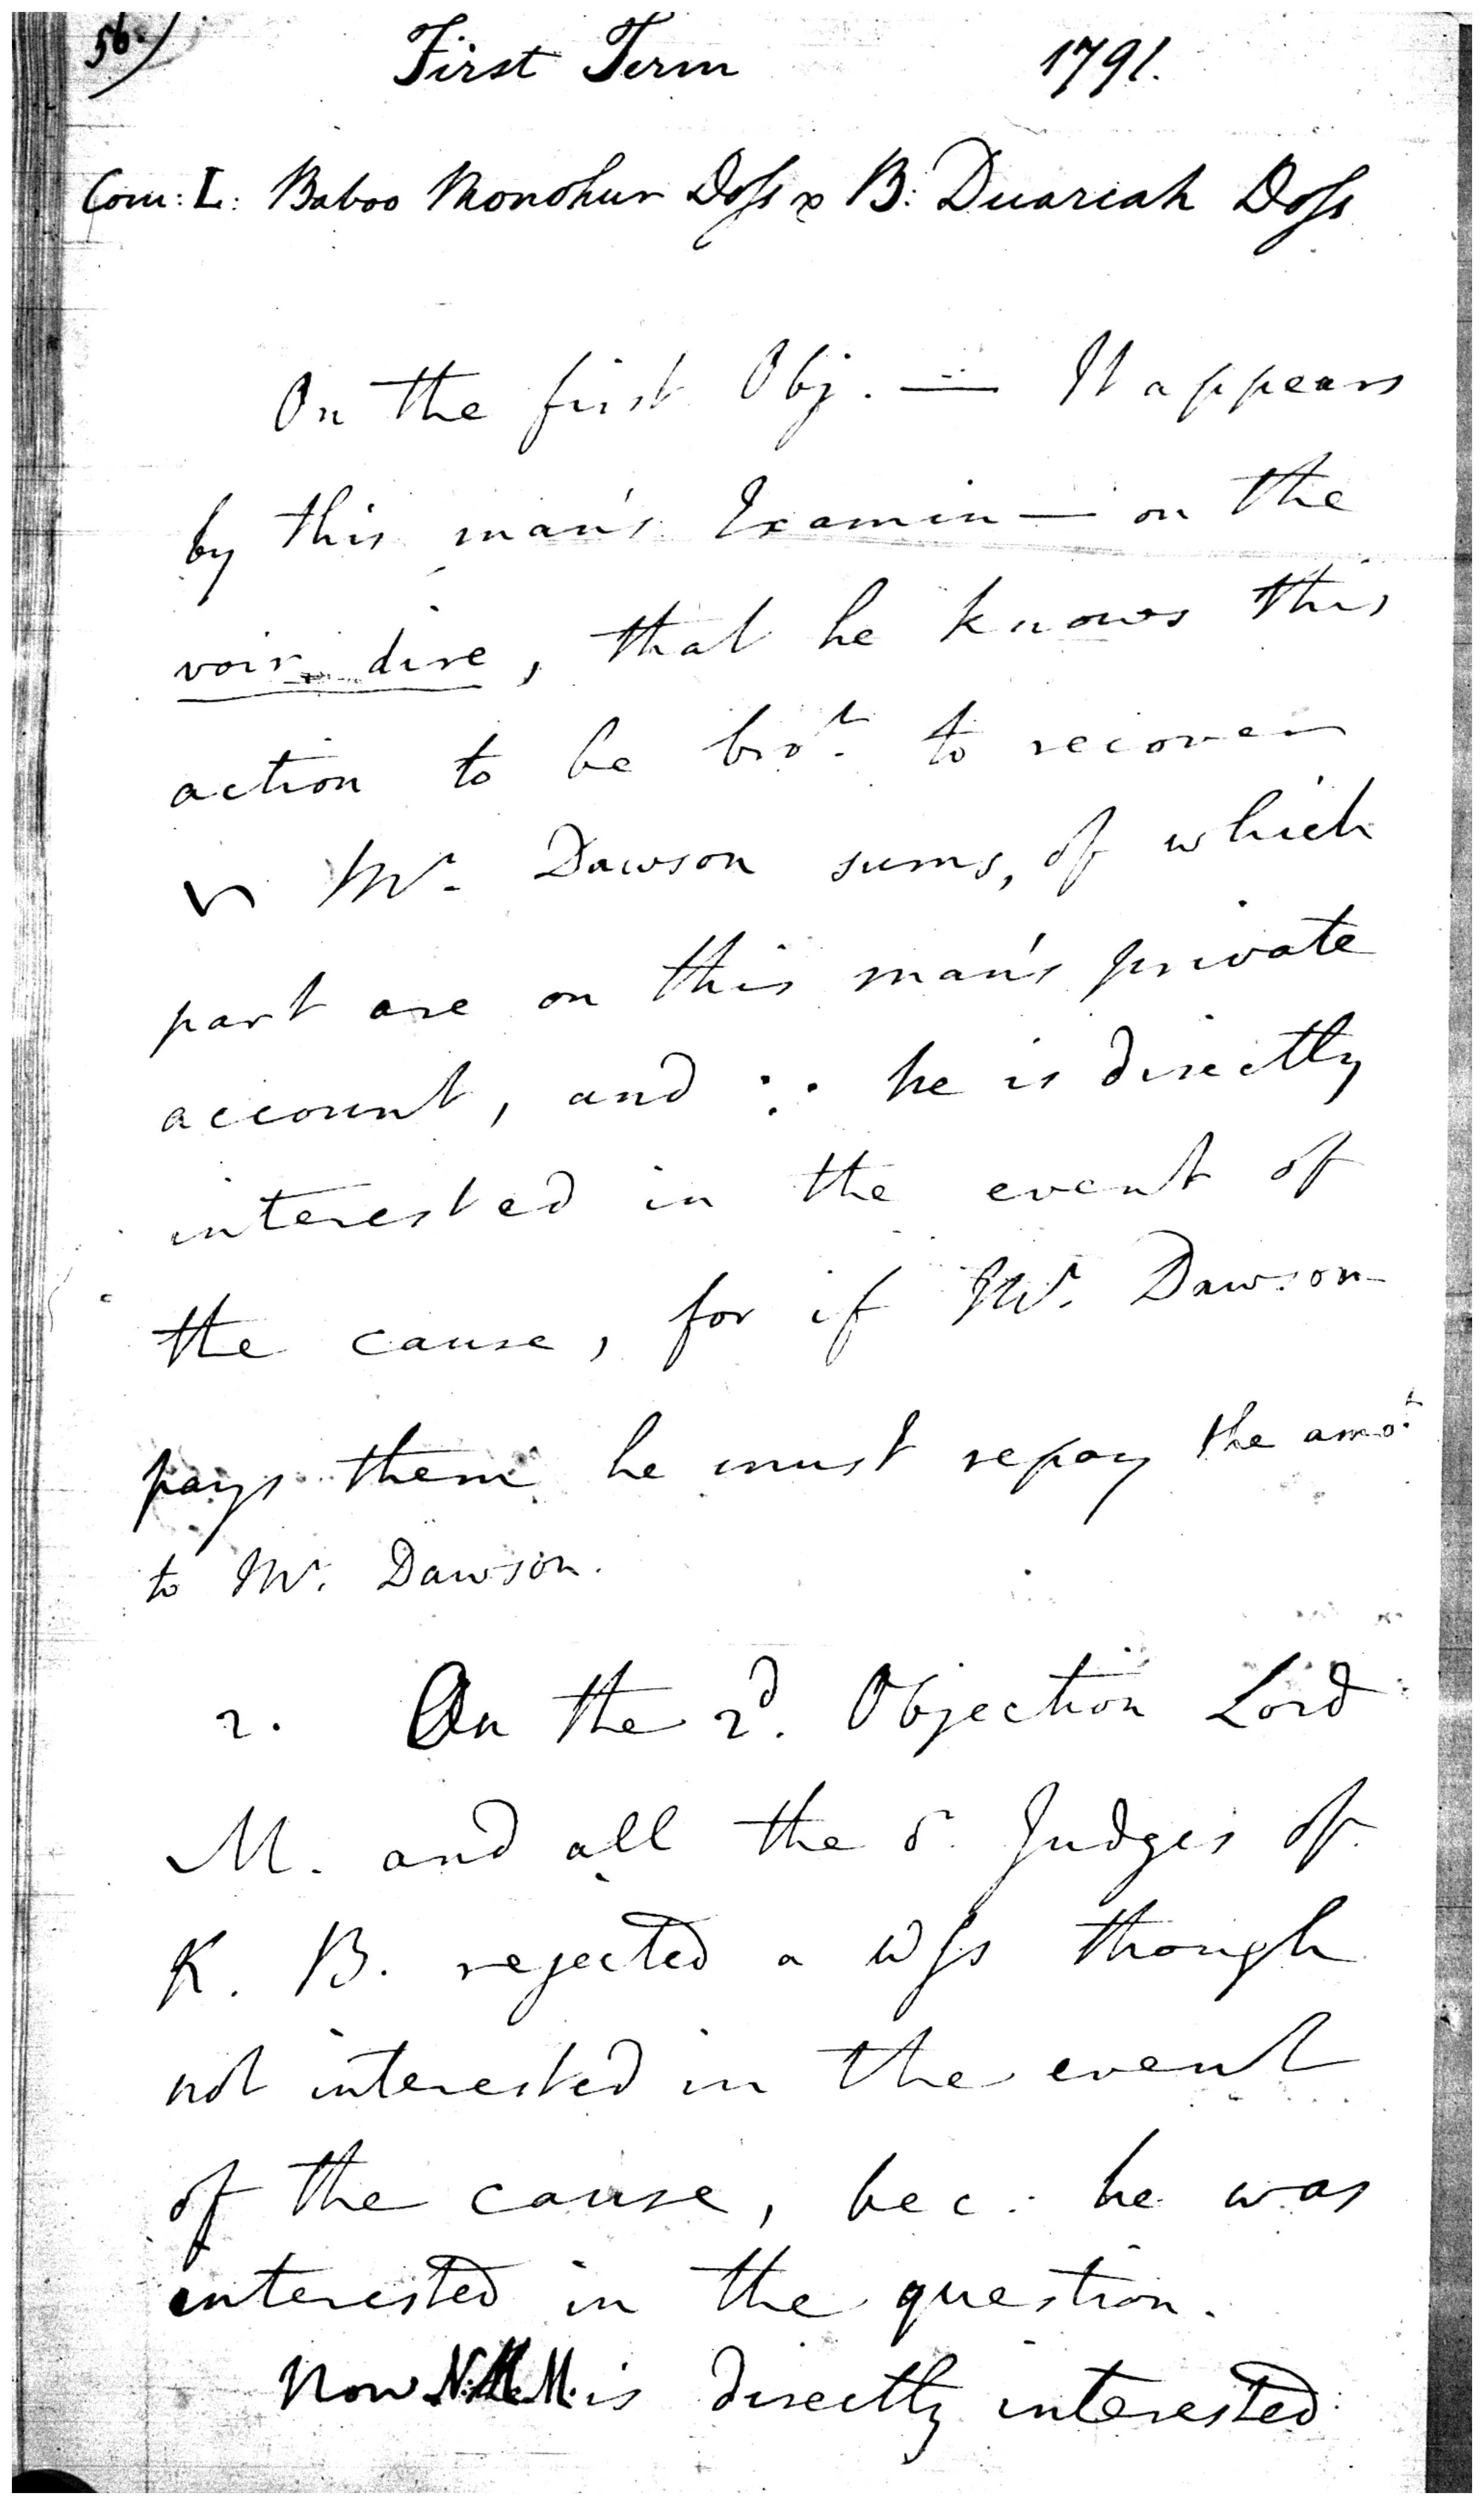 56.)
First Term 1791.
Com: L: Baboo Monohur Doss x B: Duariah Doss
On the first Obj. — It appears
by this man's Examin— on the
voir dire, that he knows this
action to be bro.t to recover
Mr. Dawson sums, of which
part are on this man's private
account, and ∵ he is directly
interested in the event of
the cause, for if Mr. Dawson
pays them he must repay the amo.t
to Mr. Dawson.
2. On the 2d. Objection Lord
M. and all the Judges of
K. B. rejected a Wss though
not interested in the event
of the cause, bec: he was
interested in the question.
Now is directly interested